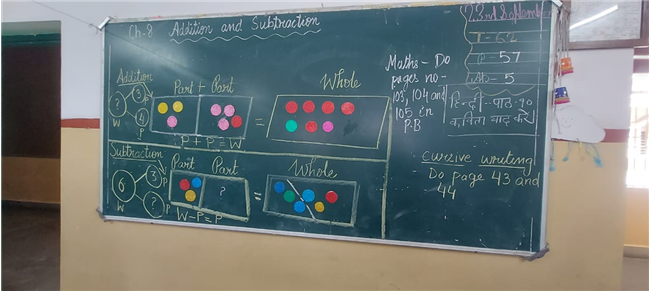 Ch-8 Addition and Subtraction
Addition
Part + Part
Whole
? 3 4
W P P
=
P + P = W
Subtraction
Part Part
Whole
6 3 ?
W P P
?
=
W-P=P
Maths - Do
pages no-
103, 104 and
105 in
P.B
P - 57
Ab - 5
हिन्दी - पाठ-10
कविता याद करें
Cursive writing
Do page 43 and
44